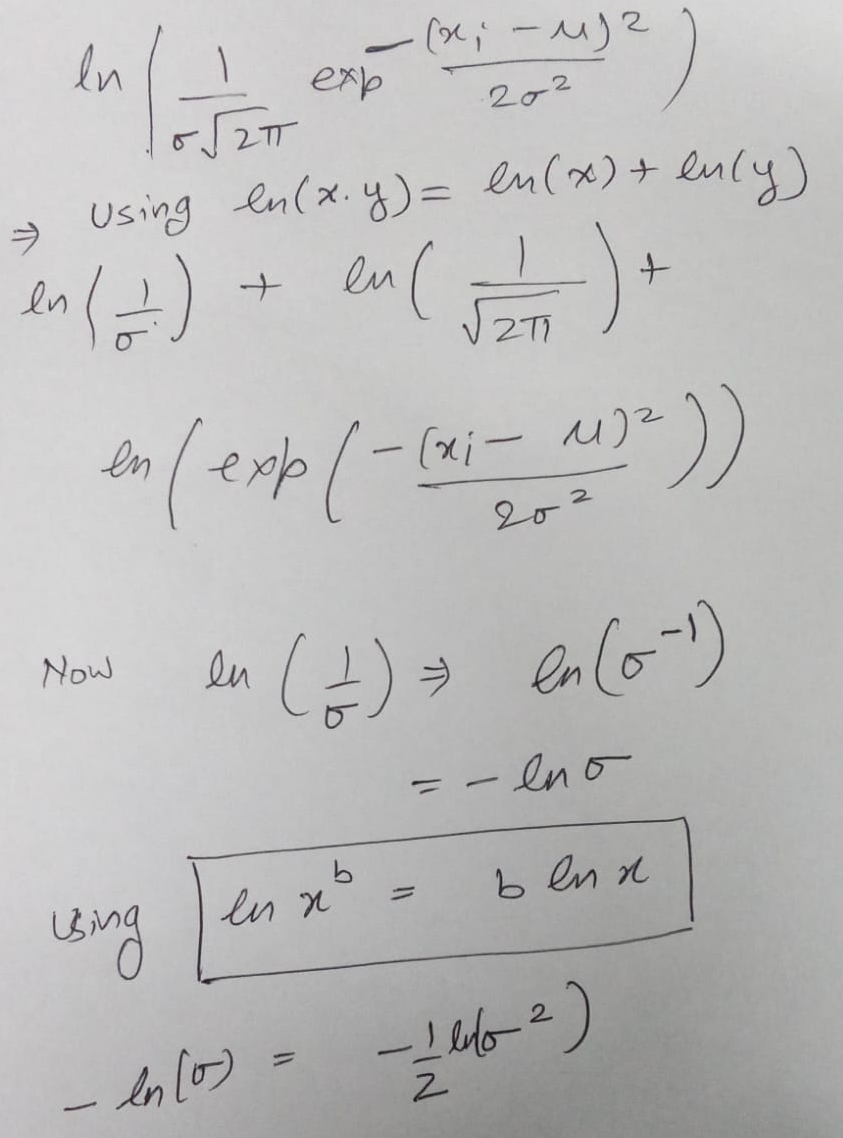 ln ( 1/(σ√2π) exp −(xi − μ)²/2σ² )
⇒ Using ln(x.y) = ln(x) + ln(y)
ln (1/σ) + ln ( 1/√2π ) +
ln ( exp ( −(xi − μ)²/2σ² ) )
Now ln (1/σ) ⇒ ln(σ⁻¹)
= − ln σ
Using ln xᵇ = b ln x
− ln(σ) = −1/2 ln(σ²)